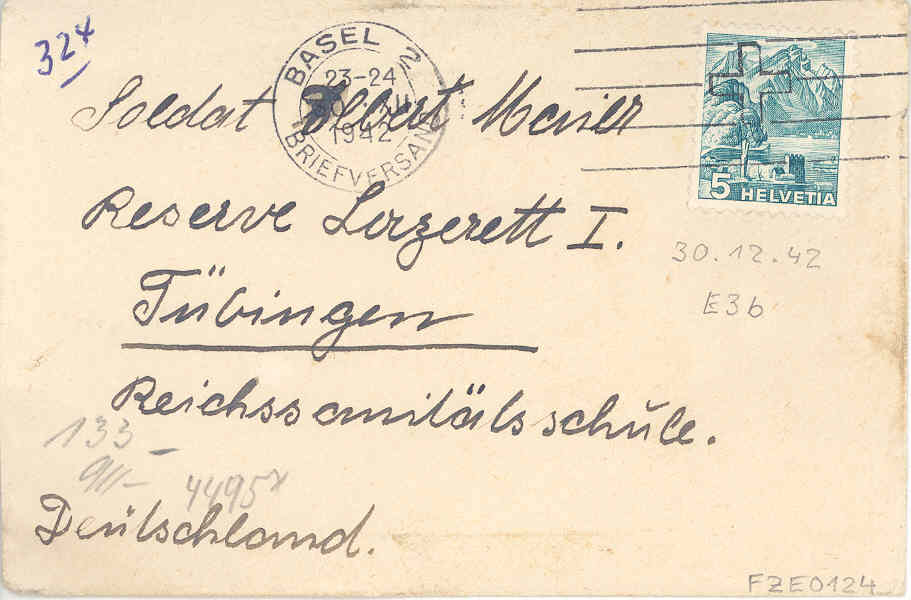 324
BASEL 2
23-24
XII
1942
BRIEFVERSAND
Soldat Albert Maier
5 HELVETIA
Reserve Lazerett I.
30.12.42
E3b
Tübingen
Reichssanitätsschule.
133-
4495
Deutschland.
FZE0124